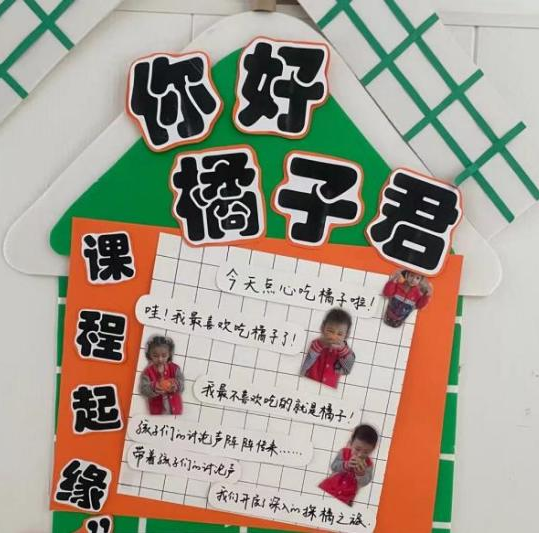 你好
橘子君
课程起缘
今天点心吃橘子啦！
哇！我最喜欢吃橘子了！
我最不喜欢吃的就是橘子！
孩子们的讨论声阵阵传来……
带着孩子们的讨论声
我们开启深入的探橘之旅.